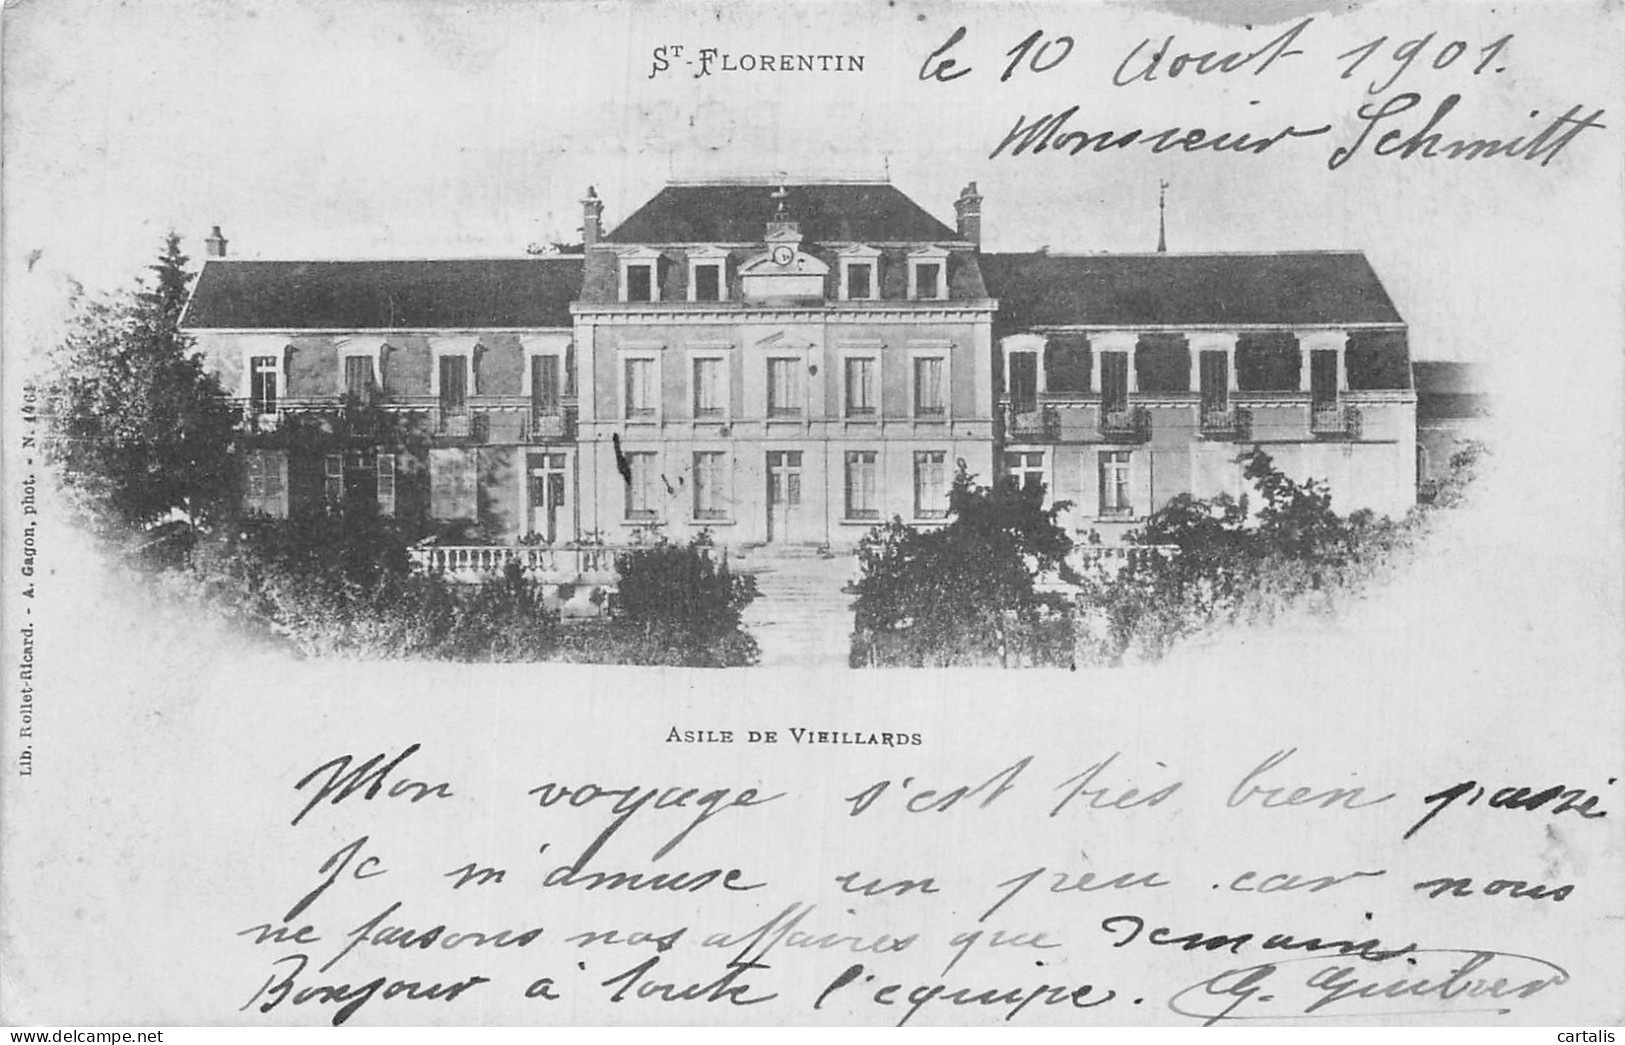 ST-FLORENTIN
le 10 Août 1901.
Monsieur Schmitt
Lib. Rollet-Ricard. - A. Gagon, phot. - N. 1464
ASILE DE VIEILLARDS
Mon voyage s'est très bien passé
Je m'amuse un peu car nous
ne faisons nos affaires que demain
Bonjour à toute l'équipe. G.
cartalis